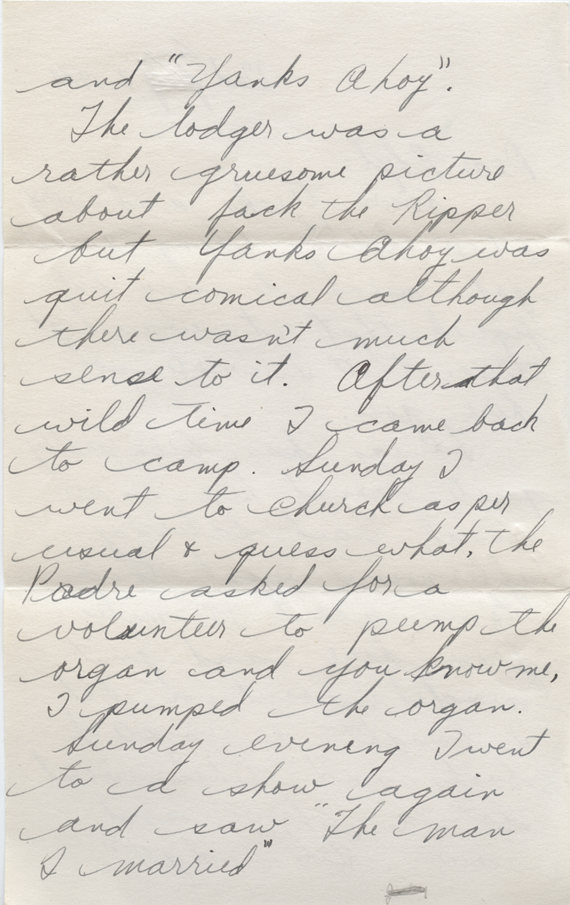 and "Yanks Ahoy".
The lodger was a
rather gruesome picture
about Jack the Ripper
but Yanks Ahoy was
quit comical although
there wasn't much
sense to it. After that
wild time I came back
to camp. Sunday I
went to church as per
usual & guess what, the
Padre asked for a
volunteer to pump the
organ and you know me,
I pumped the organ.
Sunday evening I went
to a show again
and saw "The man
I married"